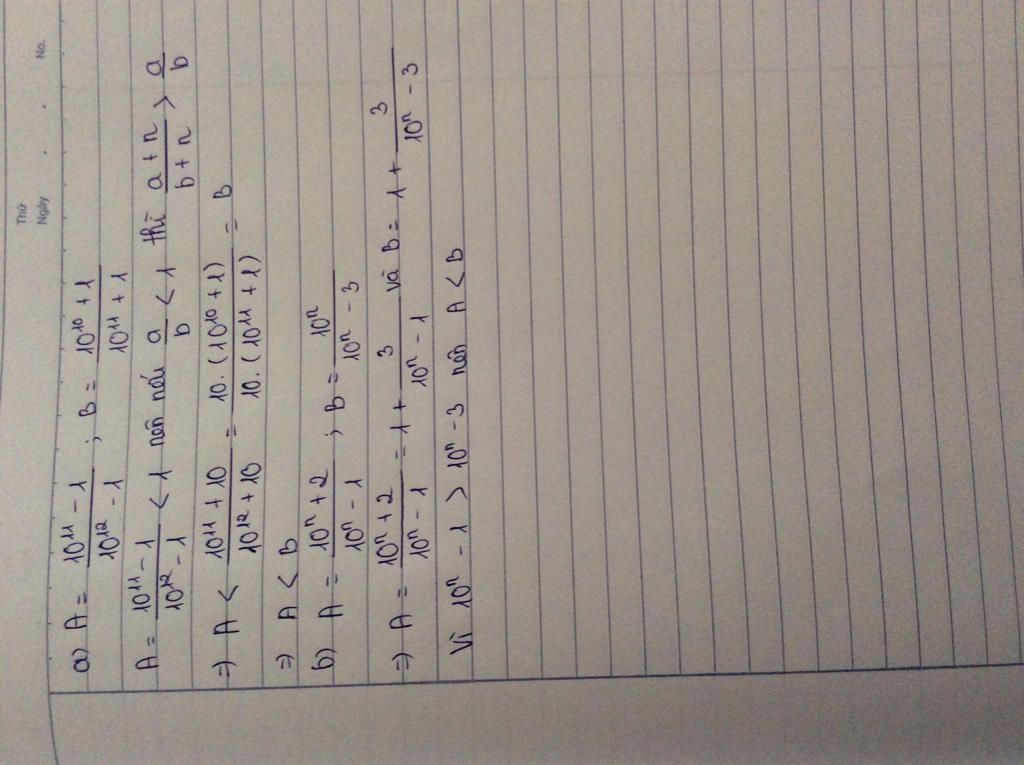 Thứ
Ngày . . No.
a) A = (10¹¹ - 1)/(10¹² - 1) ; B = (10¹⁰ + 1)/(10¹¹ + 1)
A = (10¹¹ - 1)/(10¹² - 1) < 1 nên nếu a/b < 1 thì (a + n)/(b + n) > a/b
=) A < (10¹¹ + 10)/(10¹² + 10) = 10.(10¹⁰ + 1)/10.(10¹¹ + 1) = B
=) A < B
b) A = (10ⁿ + 2)/(10ⁿ - 1) ; B = 10ⁿ/(10ⁿ - 3)
=) A = (10ⁿ + 2)/(10ⁿ - 1) = 1 + 3/(10ⁿ - 1) và B = 1 + 3/(10ⁿ - 3)
Vì 10ⁿ - 1 > 10ⁿ - 3 nên A < B